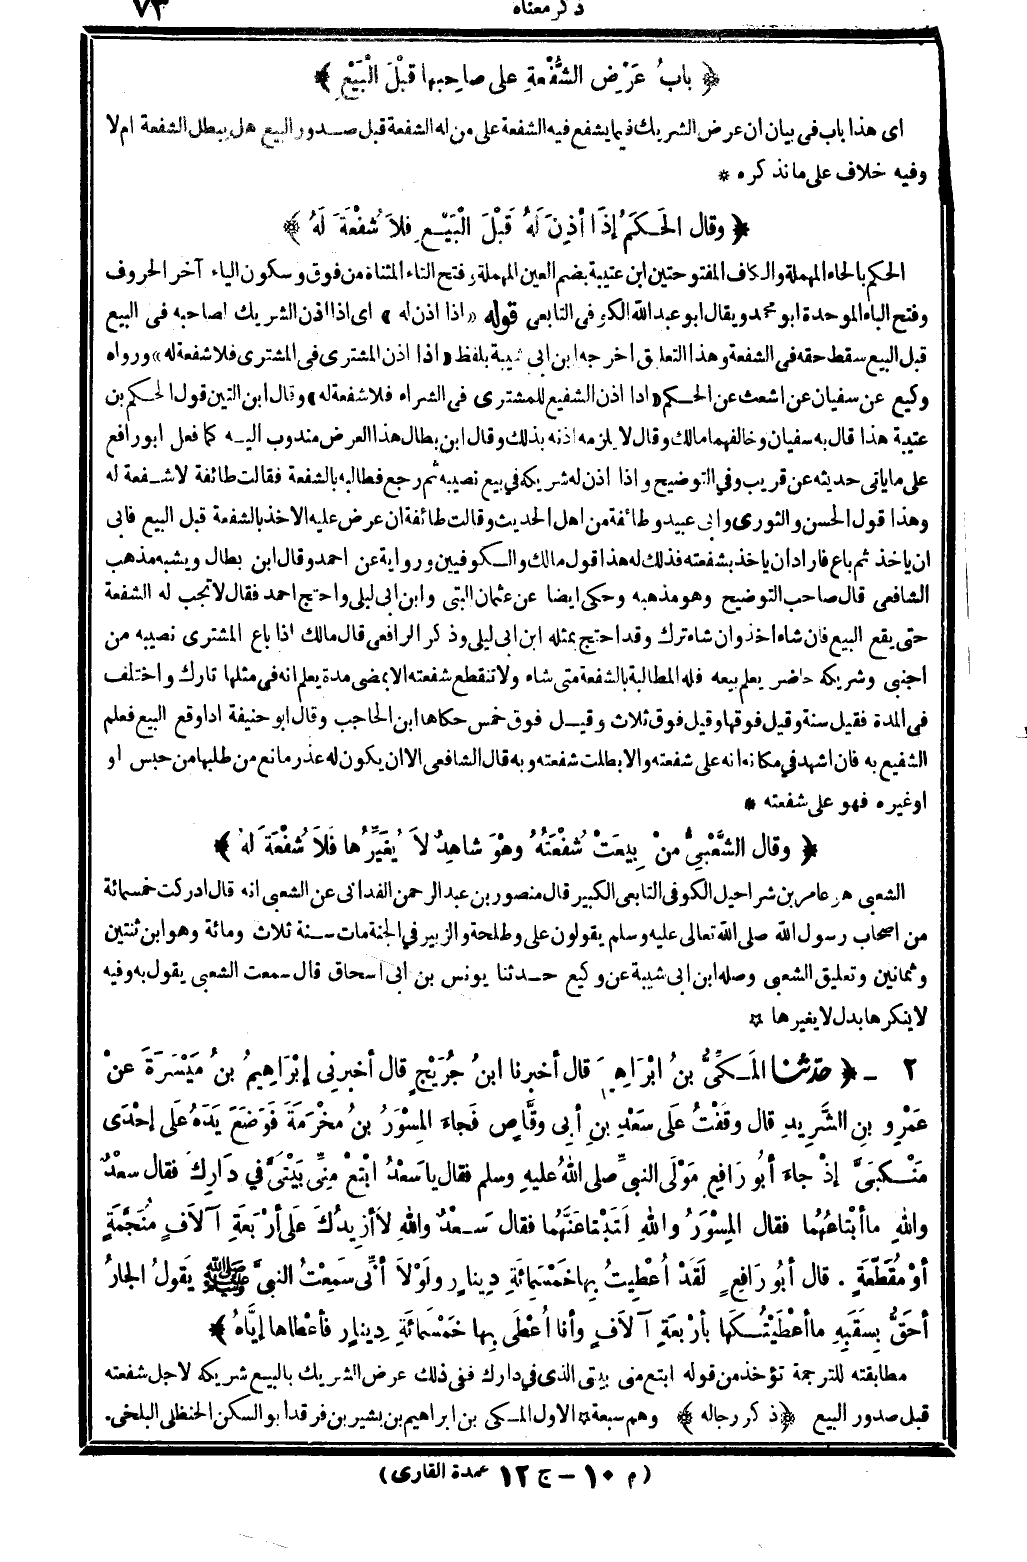 ذكر معناه ٧٣
﴿ بابُ عَرْضِ الشُّفْعَةِ على صاحِبِها قَبْلَ الْبَيْعِ ﴾
اى هذا باب فى بيان ان عرض الشريك فيما يشفع فيه الشفعة على من له الشفعة قبل صدور البيع هل يبطل الشفعة ام لا
وفيه خلاف على ما نذكره *
﴿ وقال الحَكَمُ إذَا أذِنَ لَهُ قَبْلَ الْبَيْعِ فلاَ شُفْعَةَ لَهُ ﴾
الحكم بالحاء المهملة والكاف المفتوحتين ابن عتيبة بضم العين المهملة وفتح التاء المثناة من فوق وسكون الياء آخر الحروف
وفتح الباء الموحدة ابو محمد ويقال ابو عبدالله الكوفى التابعى قوله «اذا اذن له» اى اذا اذن الشريك لصاحبه فى البيع
قبل البيع سقط حقه فى الشفعة وهذا التعليق اخرجه ابن ابى شيبة بلفظ «اذا اذن المشترى فى المشترى فلا شفعة له» ورواه
وكيع عن سفيان عن اشعث عن الحكم «اذا اذن الشفيع للمشترى فى الشراء فلا شفعة له» وقال ابن التين قول الحكم بن
عتيبة هذا قال به سفيان وخالفهما مالك وقال لا يلزمه اذنه بذلك وقال ابن بطال هذا العرض مندوب اليه كما فعل ابورافع
على ما ياتى حديثه عن قريب وفي التوضيح واذا اذن له شريكه في بيع نصيبه ثم رجع فطالبه بالشفعة فقالت طائفة لا شفعة له
وهذا قول الحسن والثورى وابى عبيد وطائفة من اهل الحديث وقالت طائفة ان عرض عليه الاخذ بالشفعة قبل البيع فابى
ان ياخذ ثم باع فاراد ان ياخذ بشفعته فذلك له هذا قول مالك والكوفيين ورواية عن احمد وقال ابن بطال ويشبه مذهب
الشافعى قال صاحب التوضيح وهو مذهبه وحكى ايضا عن عثمان البتى وابن ابى ليلى واحتج احمد فقال لا تجب له الشفعة
حتى يقع البيع فان شاء اخذ وان شاء ترك وقد احتج بمثله ابن ابى ليلى وذكر الرافعى قال مالك اذا باع المشترى نصيبه من
اجنبى وشريكه حاضر يعلم بيعه فله المطالبة بالشفعة متى شاء ولا تنقطع شفعته الا بمضى مدة يعلم انه فى مثلها تارك واختلف
فى المدة فقيل سنة وقيل فوقها وقيل فوق ثلاث وقيل فوق خمس حكاها ابن الحاجب وقال ابو حنيفة اذا وقع البيع فعلم
الشفيع به فان اشهد في مكانه انه على شفعته والا بطلت شفعته وبه قال الشافعى الا ان يكون له عذر مانع من طلبها من حبس او
او غيره فهو على شفعته *
﴿ وقال الشَّعْبِىُّ منْ بِيعَتْ شُفْعَتُهُ وهْوَ شاهِدٌ لاَ يُغَيِّرُها فَلاَ شُفْعَةَ لهُ ﴾
الشعبى هو عامر بن شراحيل الكوفى التابعى الكبير قال منصور بن عبد الرحمن الغدانى عن الشعبى انه قال ادركت خمسمائة
من اصحاب رسول الله صلى الله تعالى عليه وسلم يقولون على وطلحة والزبير في الجنة مات سنة ثلاث ومائة وهو ابن ثنتين
وثمانين وتعليق الشعبى وصله ابن ابى شيبة عن وكيع حدثنا يونس بن ابى اسحاق قال سمعت الشعبى يقول به وفيه
لا ينكرها بدل لا يغيرها ☆
٢ - ﴿ حدثنا المَكِّىُّ بنُ ابْرَاهِيمَ قال أخبرنا ابنُ جُرَيْجٍ قال أخبرنى إبْرَاهِيمُ بنُ مَيْسَرَةَ عنْ
عَمْرِو بنِ الشَّرِيدِ قال وقَفْتُ عَلَى سَعْدِ بنِ أبى وقَّاصٍ فَجاءَ المِسْوَرُ بنُ مَخْرَمَةَ فَوَضَعَ يَدَهُ عَلَى إحْدَى
مَنْكِبَىَّ إذْ جاءَ أبُو رَافِعٍ مَوْلَى النبىِّ صلى اللهُ عليهِ وسلم فقال يا سَعْدُ ابْتَعْ مِنِّى بَيْتَىَّ في دَارِكَ فقال سعْدٌ
واللهِ ما أبْتاعُهُما فقال المِسْوَرُ واللهِ لَتَبْتاعَنَّهُما فقال سَعْدٌ واللهِ لاَ أزِيدُكَ عَلَى أرْبَعَةِ آلاَفٍ مُنَجَّمَةٍ
أوْ مُقَطَّعَةٍ . قال أبُو رَافِعٍ لَقَدْ أُعْطِيتُ بِها خَمْسَمائَةِ دِينارٍ ولَوْلاَ أنِّى سَمِعْتُ النبىَّ ﷺ يَقولُ الجارُ
أحَقُّ بِسَقَبِهِ ما أعْطَيْتُكَها بأرْبَعَةِ آلاَفٍ وأنا أُعْطَى بِها خَمْسَمائَةِ دِينارٍ فأعْطاها إيَّاهُ ﴾
مطابقته للترجمة تؤخذ من قوله ابتع منى بيتى الذى في دارك ففى ذلك عرض الشريك بالبيع شريكه لاجل شفعته
قبل صدور البيع ﴿ذكر رجاله﴾ وهم سبعة☆ الاول المكى بن ابراهيم بن بشير بن فرقد ابو السكن الحنظلى البلخى.
(م ١٠ - ج ١٢ عمدة القارى)